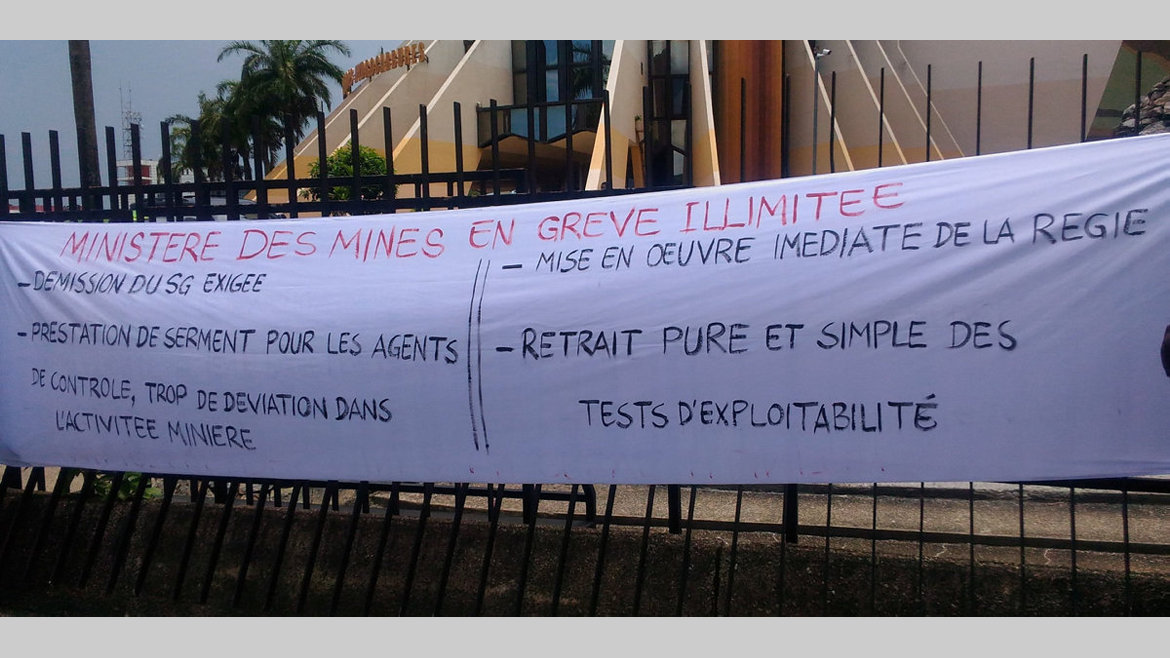 MINISTERE DES MINES EN GREVE ILLIMITEE
-DEMISSION DU SG EXIGEE
-PRESTATION DE SERMENT POUR LES AGENTS
DE CONTROLE, TROP DE DEVIATION DANS
L'ACTIVITEE MINIERE
- MISE EN OEUVRE IMEDIATE DE LA REGIE
-RETRAIT PURE ET SIMPLE DES
TESTS D'EXPLOITABILITÉ